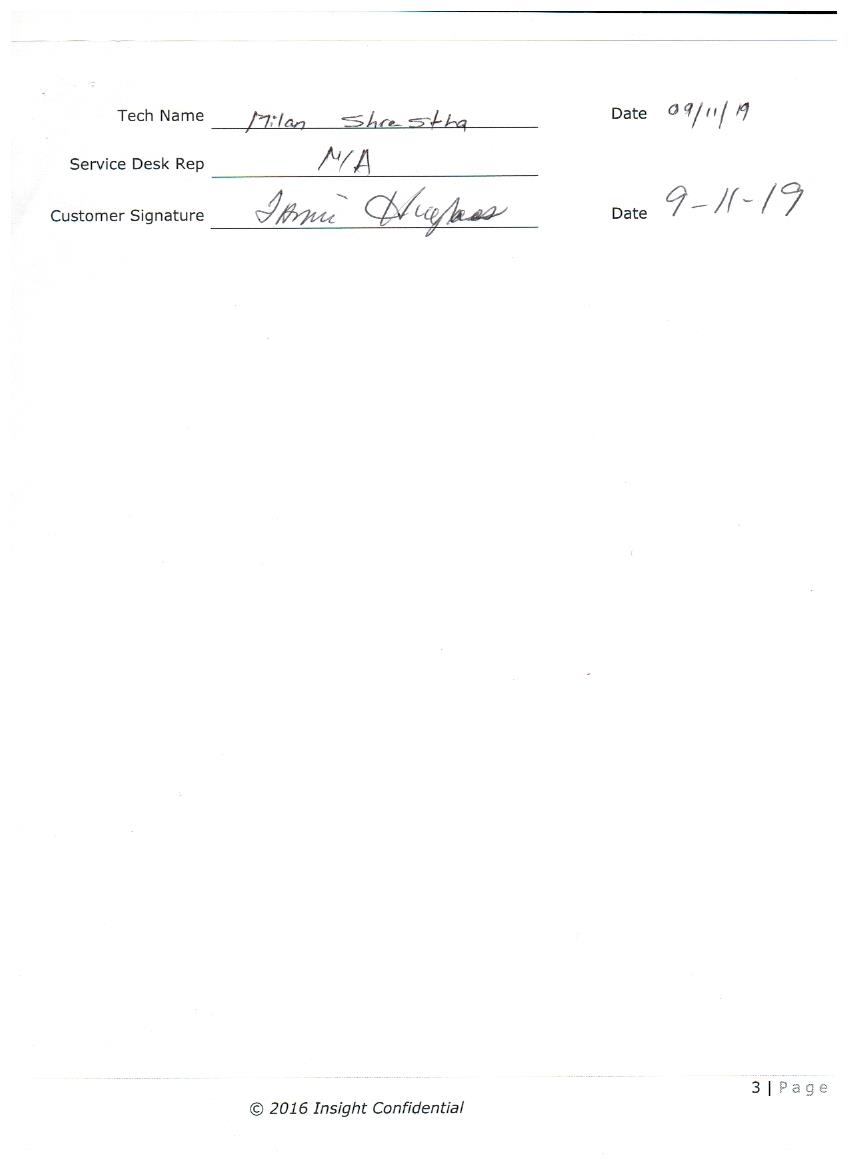 Tech Name Milan Shrestha Date 09/11/19
Service Desk Rep N/A
Customer Signature Tammi Hughes Date 9-11-19
3 | Page
© 2016 Insight Confidential